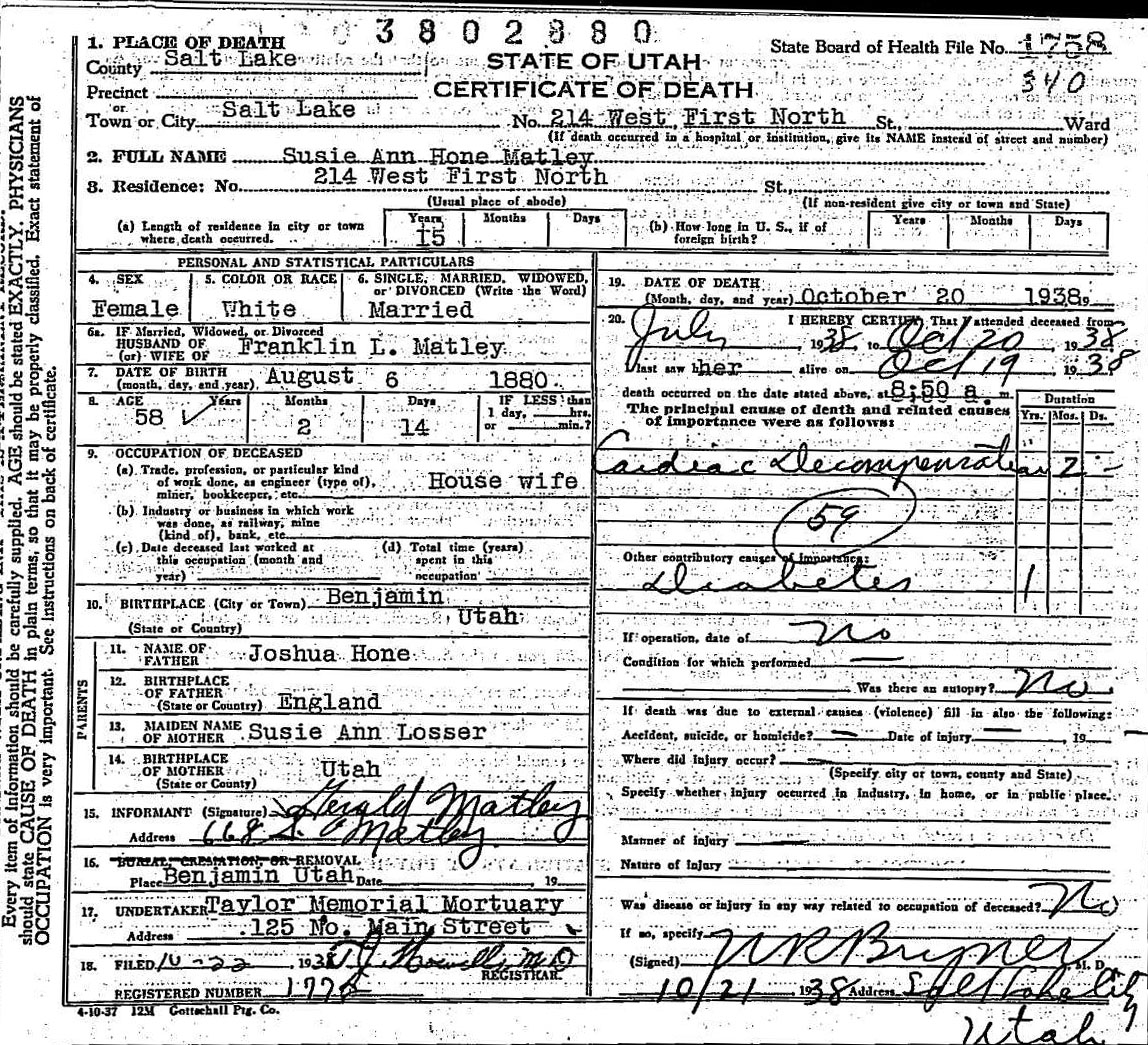 3802880
1. PLACE OF DEATH
County Salt Lake
Precinct
or
Town or City Salt Lake
STATE OF UTAH
CERTIFICATE OF DEATH
State Board of Health File No. 1758
340
No. 214 West First North St., Ward
(If death occurred in a hospital or institution, give its NAME instead of street and number)
2. FULL NAME Susie Ann Hone Matley
3. Residence: No. 214 West First North St.,
(Usual place of abode) (If non-resident give city or town and State)
(a) Length of residence in city or town where death occurred. Years 15 Months Days
(b) How long in U. S., if of foreign birth? Years Months Days
PERSONAL AND STATISTICAL PARTICULARS
4. SEX Female
5. COLOR OR RACE White
6. SINGLE, MARRIED, WIDOWED, or DIVORCED (Write the Word) Married
6a. IF Married, Widowed, or Divorced
HUSBAND OF
(or) WIFE OF Franklin L. Matley
7. DATE OF BIRTH
(month, day, and year) August 6 1880
8. AGE Years 58 Months 2 Days 14
IF LESS than
1 day, hrs.
or min.?
9. OCCUPATION OF DECEASED
(a) Trade, profession, or particular kind
of work done, as engineer (type of),
miner, bookkeeper, etc. House wife
(b) Industry or business in which work
was done, as railway, mine
(kind of), bank, etc.
(c) Date deceased last worked at
this occupation (month and
year)
(d) Total time (years)
spent in this
occupation
10. BIRTHPLACE (City or Town) Benjamin
(State or Country) Utah
PARENTS
11. NAME OF
FATHER Joshua Hone
12. BIRTHPLACE
OF FATHER
(State or Country) England
13. MAIDEN NAME
OF MOTHER Susie Ann Losser
14. BIRTHPLACE
OF MOTHER Utah
(State or County)
15. INFORMANT (Signature) Gerald Matley
Address 668 Matley
16. BURIAL, CREMATION, OR REMOVAL
Place Benjamin Utah Date 19
17. UNDERTAKER Taylor Memorial Mortuary
Address 125 No. Main Street
18. FILED 10-22 1938 M D
REGISTRAR.
REGISTERED NUMBER 1775
4-10-37 12M Gottschall Ptg. Co.
19. DATE OF DEATH
(Month, day, and year) October 20 1938
20. I HEREBY CERTIFY That I attended deceased from
July 1938, to Oct 20 1938
I last saw her alive on Oct 19 1938
death occurred on the date stated above, at 8:50 a. m.
The principal cause of death and related causes
of importance were as follows:
Duration
Yrs. Mos. Ds.
Cardiac Decompensation 2 -
59
Other contributory causes of importance:
Diabetes 1
If operation, date of No
Condition for which performed —
Was there an autopsy? No
If death was due to external causes (violence) fill in also the following:
Accident, suicide, or homicide? — Date of injury — 19 —
Where did injury occur? —
(Specify city or town, county and State)
Specify whether injury occurred in industry, in home, or in public place.
Manner of injury —
Nature of injury —
Was disease or injury in any way related to occupation of deceased? No
If so, specify
(Signed) W R Brymer M. D.
10/21, 1938 Address Salt Lake City
Utah
Every item of information should be carefully supplied. AGE should be stated EXACTLY. PHYSICIANS
should state CAUSE OF DEATH in plain terms, so that it may be properly classified. Exact statement of
OCCUPATION is very important. See instructions on back of certificate.